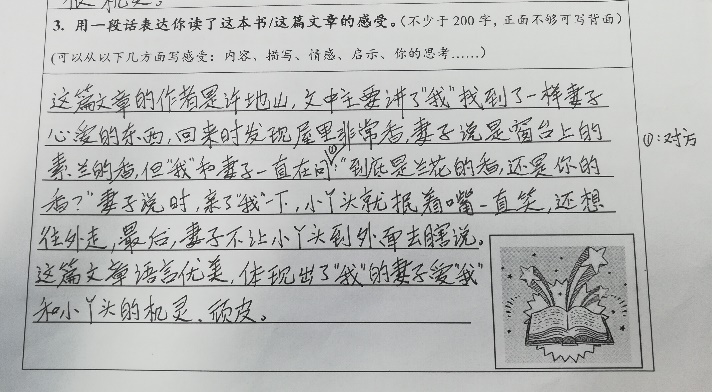 3. 用一段话表达你读了这本书/这篇文章的感受。（不少于 200 字，正面不够可写背面）
(可以从以下几方面写感受：内容、描写、情感、启示、你的思考……)
这篇文章的作者是许地山,文中主要讲了"我"找到了一样妻子
心爱的东西,回来时发现屋里非常香,妻子说是窗台上的
素兰的香,但"我"和妻子一直在问①:"到底是兰花的香,还是你的
香?"妻子说时,亲了"我"一下,小丫头就抿着嘴一直笑,还想
往外走,最后,妻子不让小丫头到外面去瞎说。
这篇文章语言优美,体现出了"我"的妻子爱"我"
和小丫头的机灵、顽皮。
①:对方